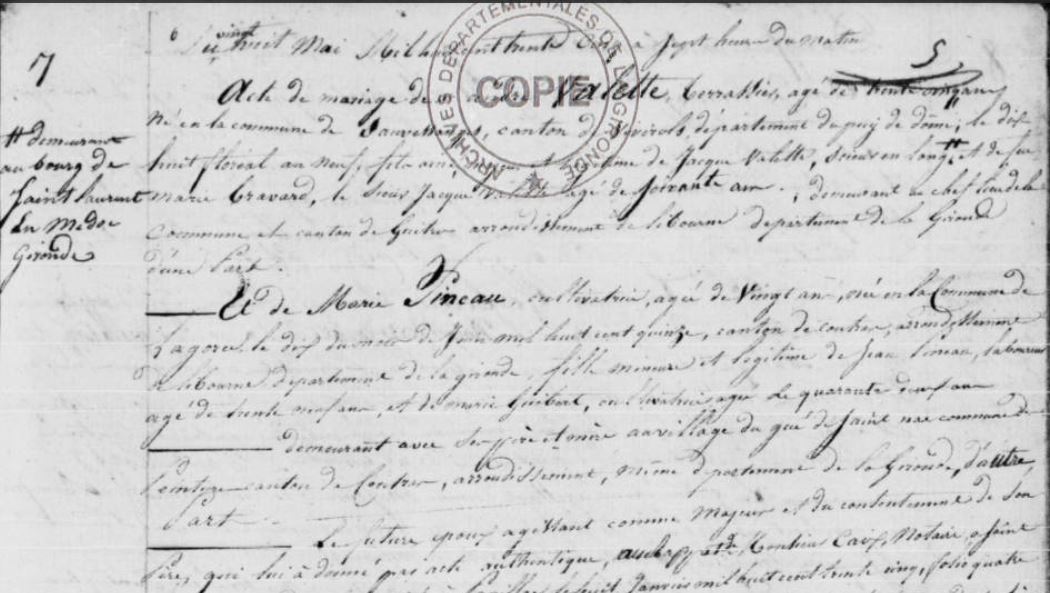 7
5
Le vingt huit Mai Mil huit cent trente cinq a sept heure du matin
Acte de mariage de Valette, terrassier, agé de trente cinq ans
Né en la commune de canton de département du puy de dôme, le dix
# demeurant
au bourg de
Saint Laurent
En Medoc
Gironde
huit floreal an neuf, fils de Jacque Valette, Scieur en long, # et de feu
marie Gravard, le Sieur Jacque Valette agé de Soixante ans, demeurant au chef lieu de la
Commune et canton de Guitres arrondissement de libourne departement de la Gironde
d'une Part
Et de Marie Pineau, cultivatrice, agé de Vingt ans, née en la Commune de
Lagorce le dix du mois de Juin mil huit cent quinze, canton de coutras, arrondissement
de libourne departement de la gironde, fille mineure et legitime de Jean Pineau, laboureur
agé de trente neuf ans et de marie Guibert, cultivatrice agée de quarante deux ans
demeurant avec Ses père et mère au village du gué de commune de
canton de Coutras, arrondissement, même departement de la Gironde, d'autre
Part
Le future epoux agissant comme Majeur et du consentement de Son
Père, qui lui à donné par acte authentique, Notaire, a Saint
le huit Janvier mil huit cent trente cinq, folio quatre
ARCHIVES DEPARTEMENTALES DE LA GIRONDE
COPIE